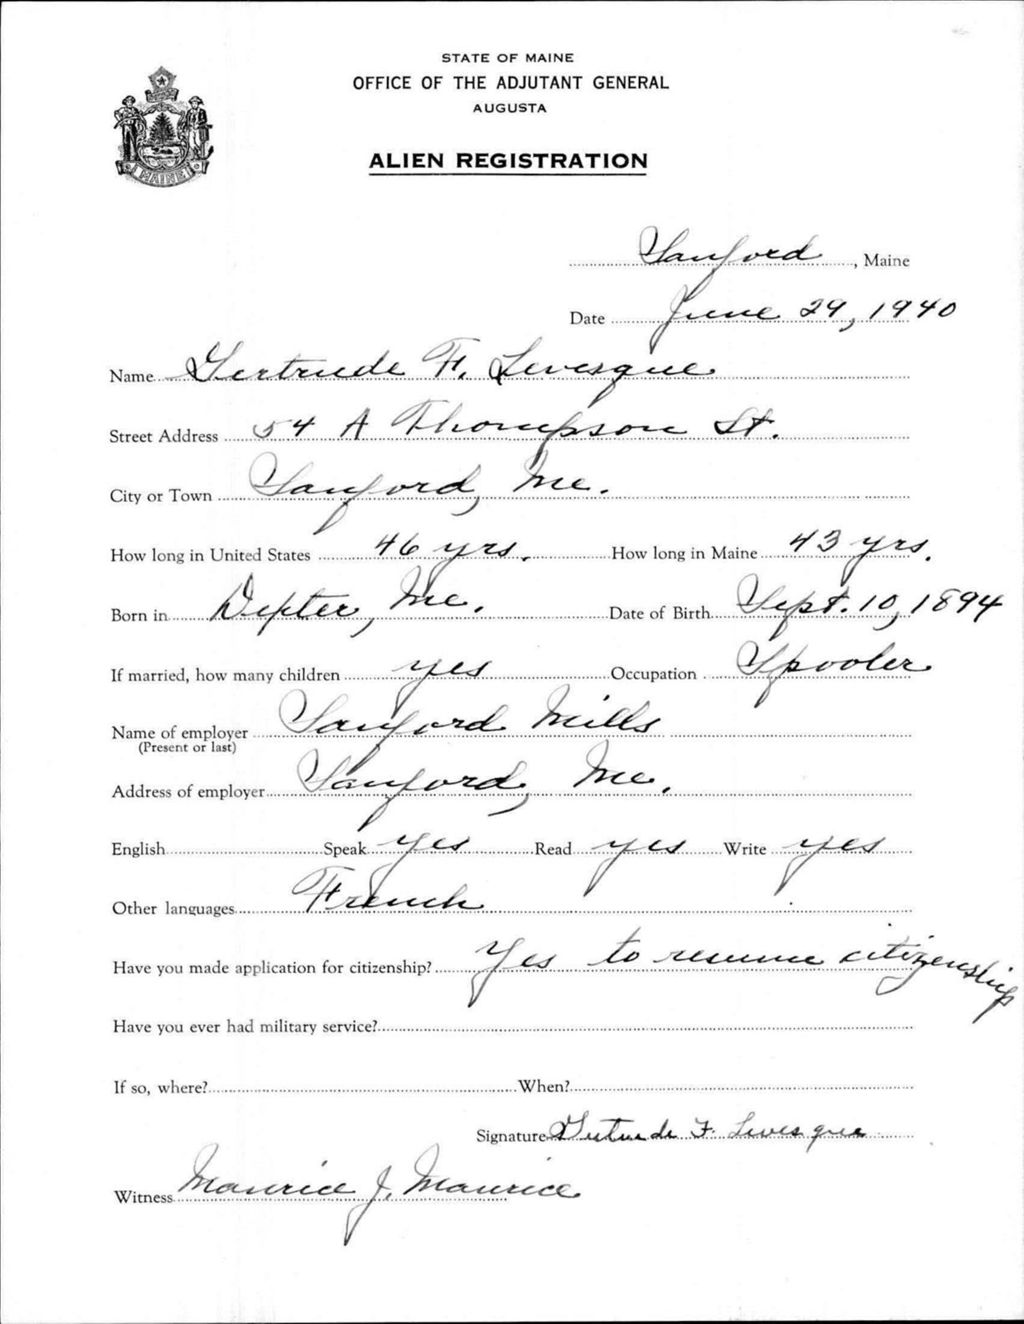 STATE OF MAINE
OFFICE OF THE ADJUTANT GENERAL
AUGUSTA
ALIEN REGISTRATION
MAINE
Sanford, Maine
Date June 29, 1940
Name Gertrude F. Levesque
Street Address 54 A Thompson St.
City or Town Sanford, Me.
How long in United States 46 yrs. How long in Maine 43 yrs.
Born in Depter, Me. Date of Birth Sept. 10, 1894
If married, how many children yes Occupation Spooler
Name of employer Sanford Mills
(Present or last)
Address of employer Sanford, Me.
English Speak yes Read yes Write yes
Other languages French
Have you made application for citizenship? Yes to resume citizenship
Have you ever had military service?
If so, where? When?
Signature Gertrude F. Levesque
Witness Maurice J. Maurice